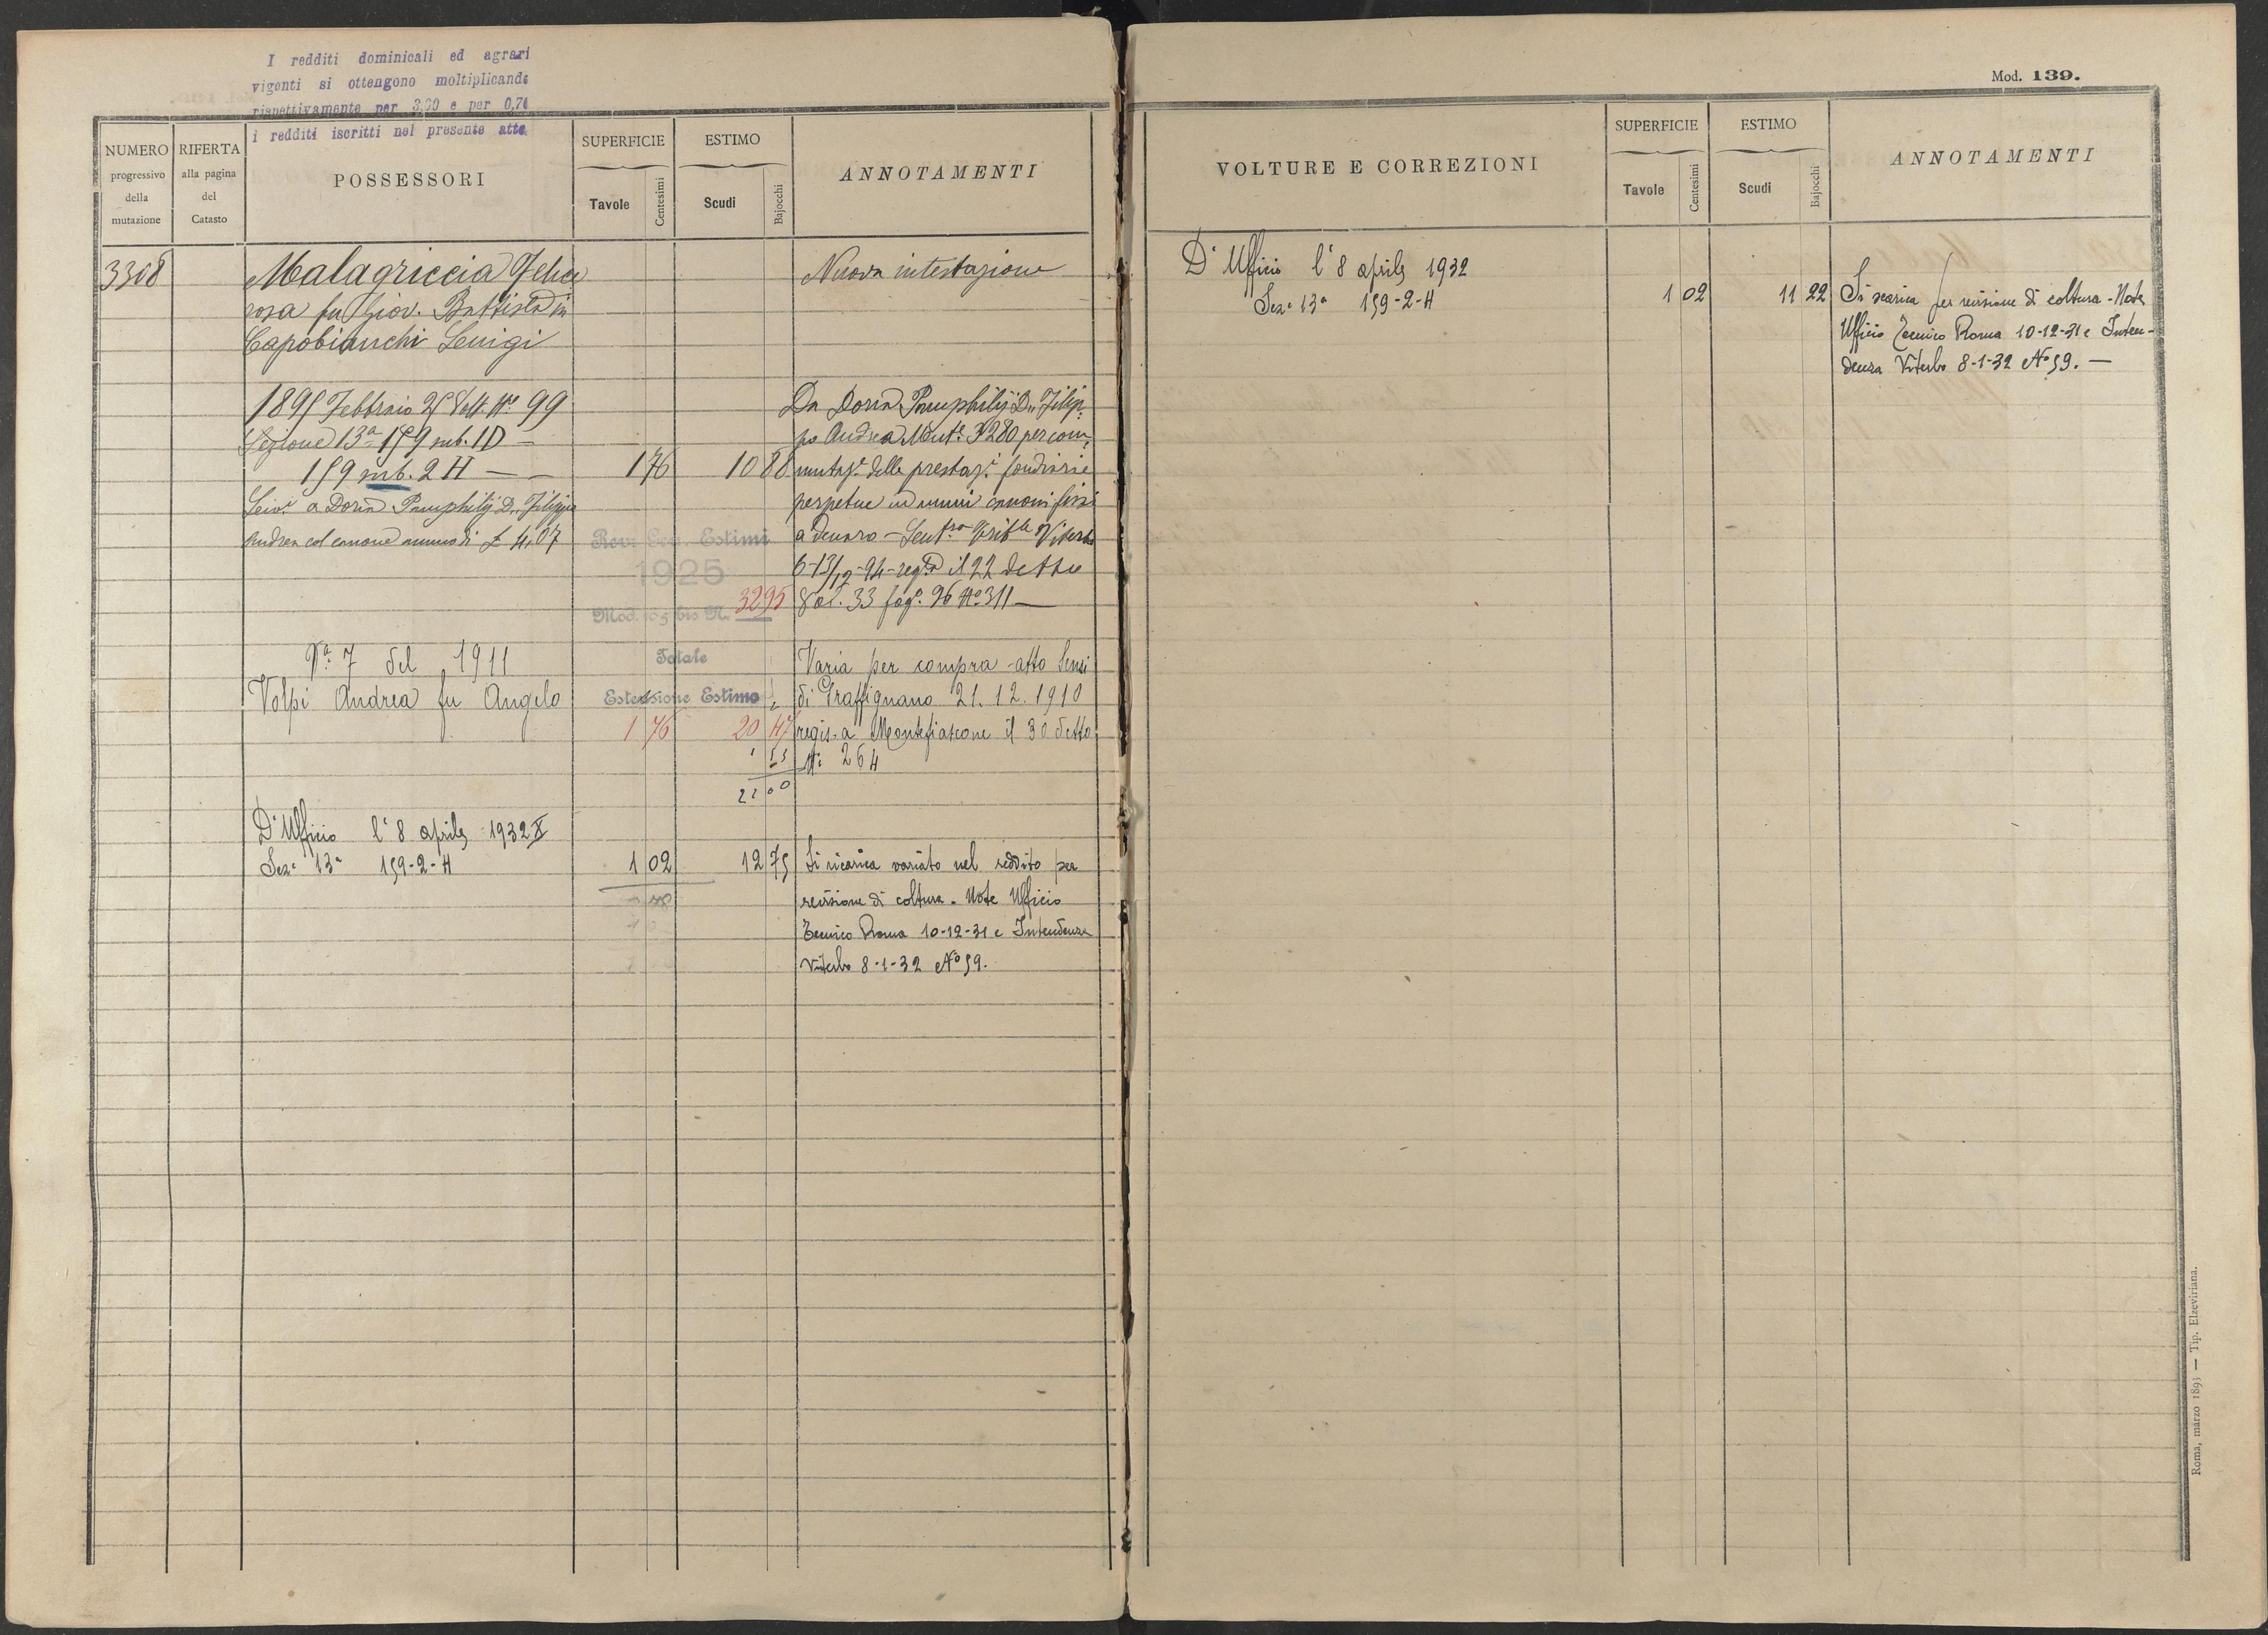 I redditi dominicali ed agrari
vigenti si ottengono moltiplicando
rispettivamente per 3,00 e per 0,70
i redditi iscritti nel presente atto
NUMERO progressivo della mutazione
RIFERTA alla pagina del Catasto
POSSESSORI
SUPERFICIE
Tavole
Centesimi
ESTIMO
Scudi
Bajocchi
ANNOTAMENTI
3308
Malagriccia Felice
rosa fu Giov. Battista in
Capobianchi Luigi
Nuova intestazione
1895 Febbraio 25 Volt. No 99
Sezione 13a 159 sub. 1D —
159 sub. 2 H — — 1 76 10 88
a Doria Pamphilij D. Filippo
Andrea col canone annuo di £ 4,07
Da Doria Pamphilij D. Filip-
po Andrea Mut. 3280 per com-
mutaz.e delle prestaz.i fondiarie
perpetue in annui canoni fissi
a denaro — Sent.
6-13/12-94 - reg.ta il 22 detto
Vol. 33 fog. 96 No 311 —
Rev. Gen. Estimi
1925
Mod. 105 bis N. 3295
Va. 7 del 1911
Volpi Andrea fu Angelo
Totale
Estensione Estimo
1 76 20 47
21 00
Varia per compra - atto Sensi
di Graffignano 21.12.1910
regis. a Montefiascone il 30 detto
No 264
D'Ufficio lì 8 aprile 1932 X
Seze 13a 159-2-H 1 02 12 75
Si ricarica variato nel reddito per
revisione di coltura. Note Ufficio
Tecnico Roma 10-12-31 e Intendenza
Viterbo 8-1-32 No 59.
Mod. 139.
VOLTURE E CORREZIONI
SUPERFICIE
Tavole
Centesimi
ESTIMO
Scudi
Bajocchi
ANNOTAMENTI
D'Ufficio lì 8 aprile 1932
Seze 13a 159-2-H 1 02 11 22
Si scarica per revisione di coltura - Note
Ufficio Tecnico Roma 10-12-31 e Inten-
denza Viterbo 8-1-32 No 59. —
Roma, marzo 1893 — Tip. Elzeviriana.